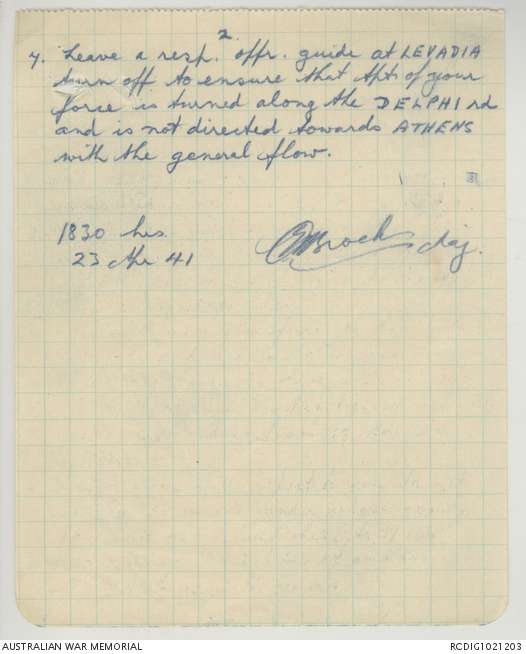 2.
7. Leave a resp. offr. guide at LEVADIA
turn off to ensure that tpt of your
force is turned along the DELPHI rd
and is not directed towards ATHENS
with the general flow.
1830 hrs.
23 Apr 41
Brock Maj.
AUSTRALIAN WAR MEMORIAL
RCDIG1021203